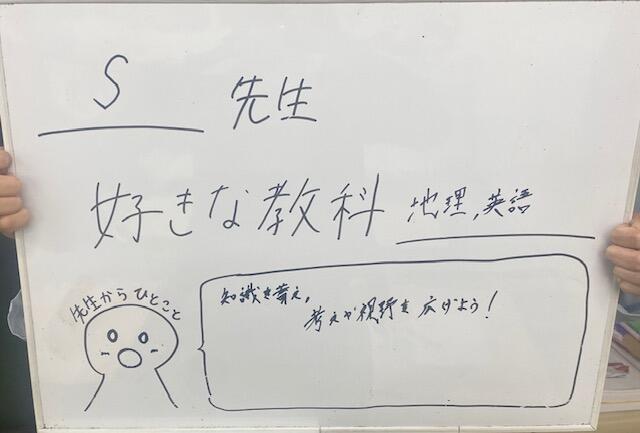 S 先生
好きな教科 地理,英語
先生からひとこと
知識を蓄え,
考えや視野を広げよう!